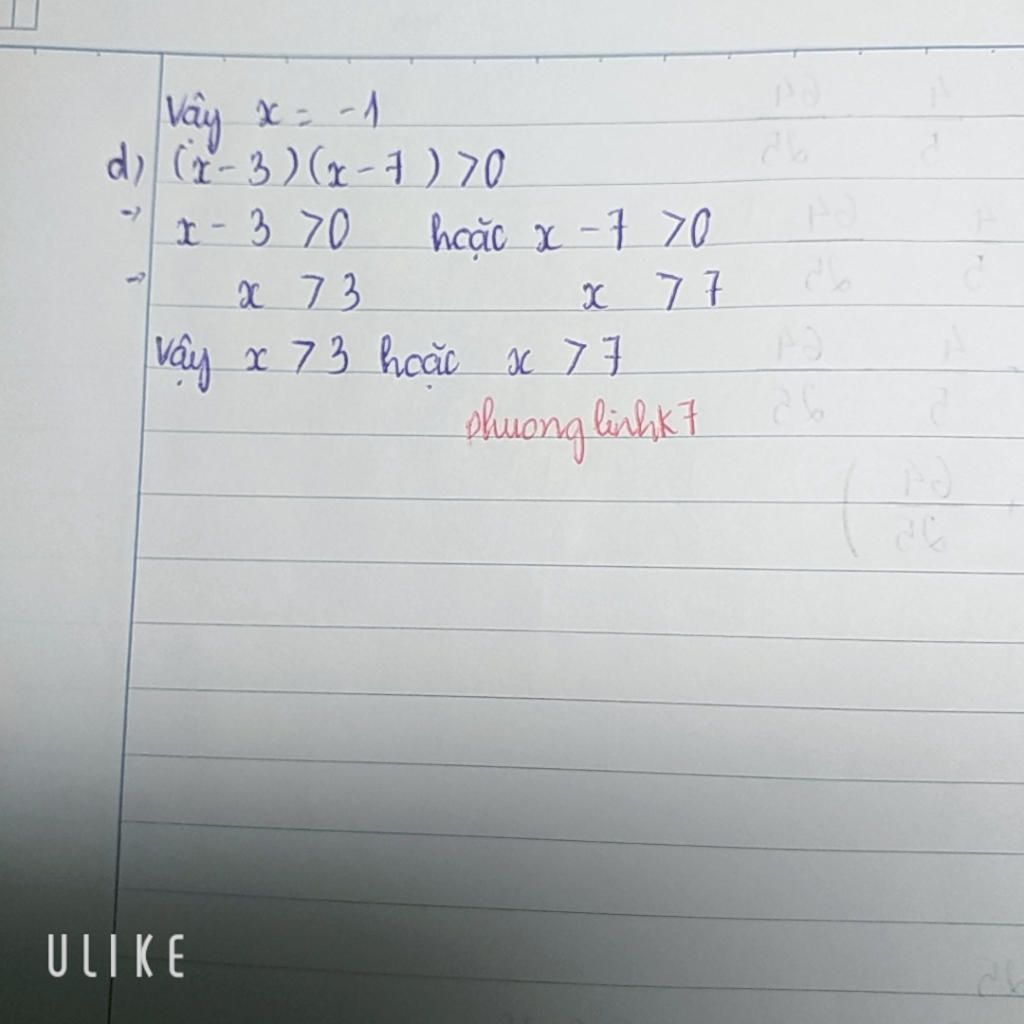 Vậy x = -1
d) (x - 3)(x - 7) > 0
→ x - 3 > 0 hoặc x - 7 > 0
→ x > 3 x > 7
Vậy x > 3 hoặc x > 7
phuonglinhk7
ULIKE